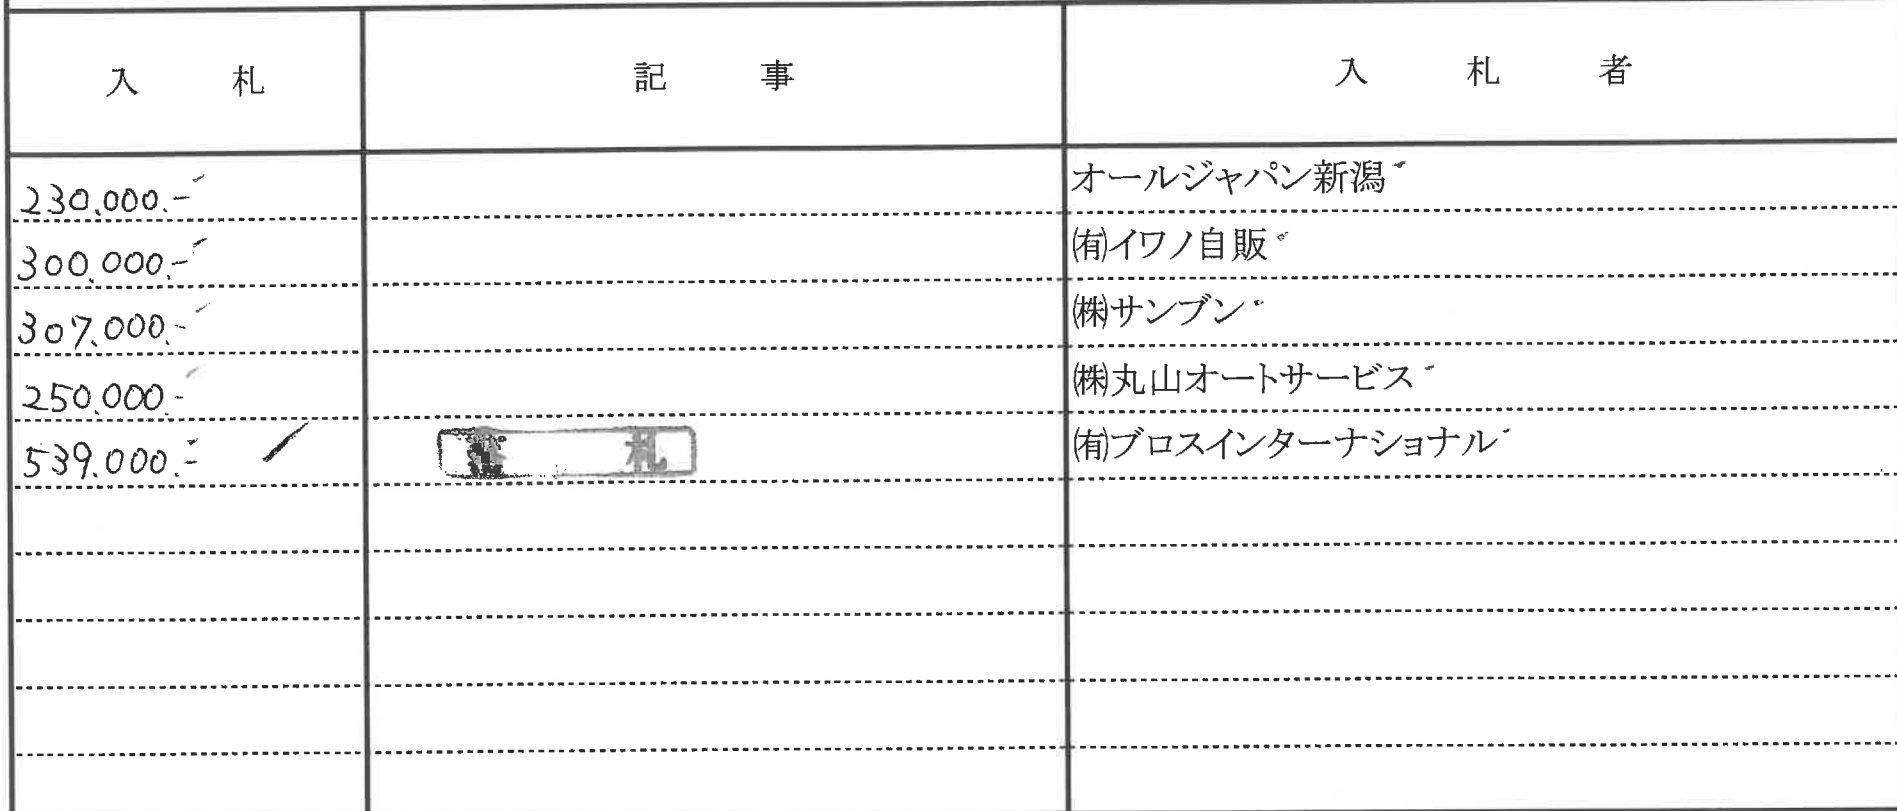 入札 記事 入札者
230,000.- オールジャパン新潟
300,000.- ㈲イワノ自販
307,000.- ㈱サンブン
250,000.- ㈱丸山オートサービス
539,000.- 札 ㈲ブロスインターナショナル